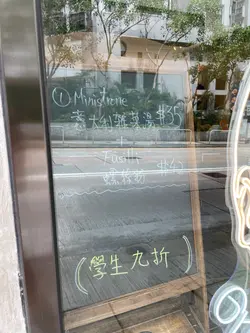 ① Ministrone
意大利雜菜湯 $35
+
Fusilli
螺絲粉 $42
(學生九折)